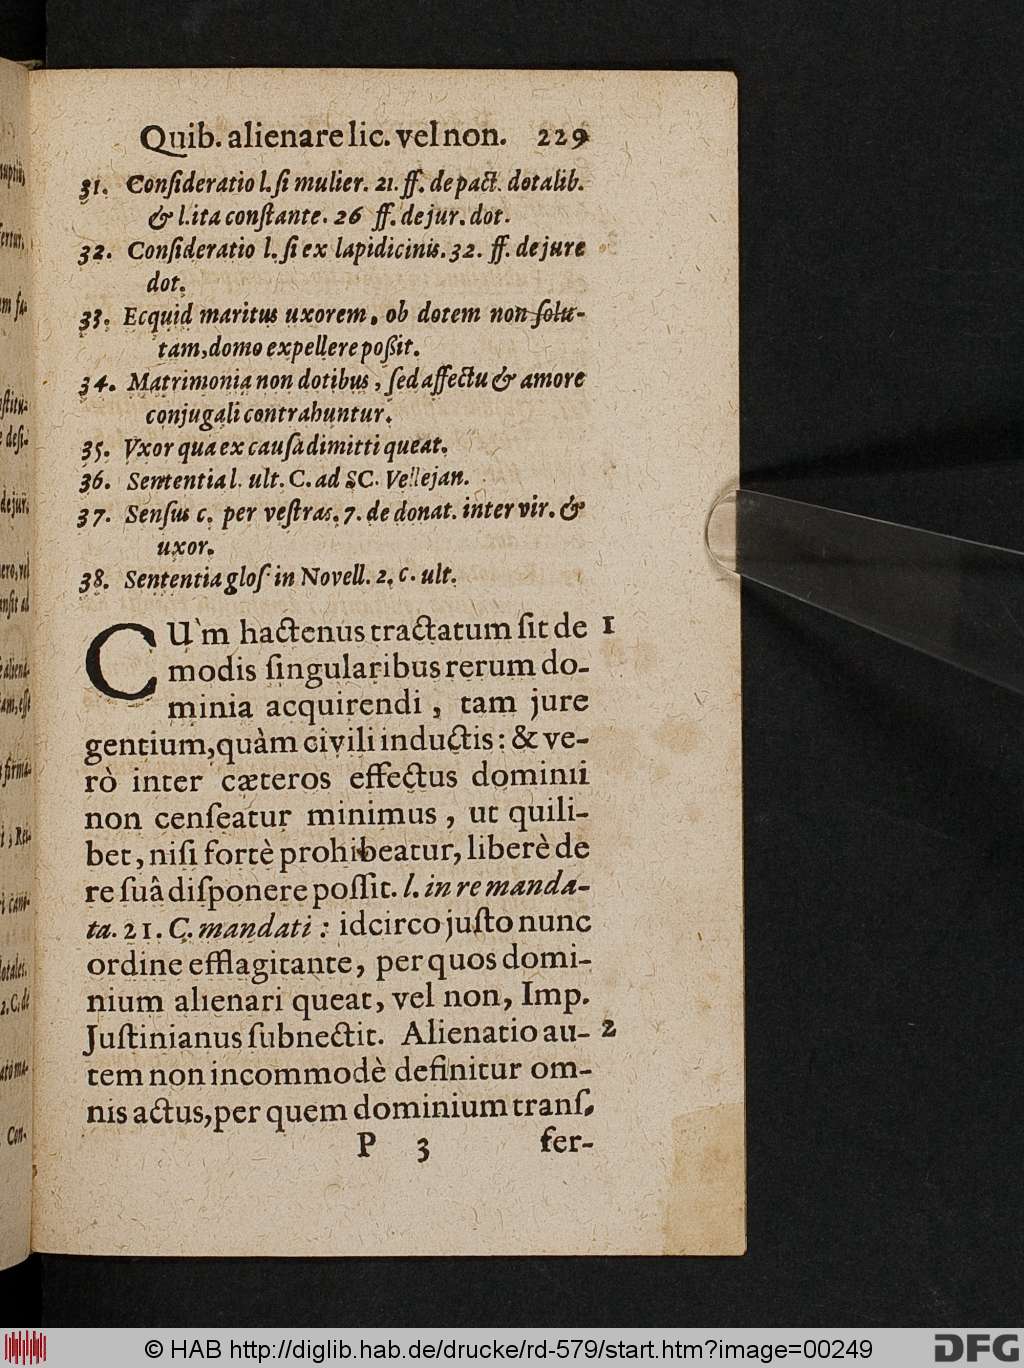 Quib. alienare lic. vel non. 229
31. Conſideratio l. ſi mulier. 21. ff. de pact. dotalib.
& l. ita conſtante. 26 ff. de jur. dot.
32. Conſideratio l. ſi ex lapidicinis. 32. ff. de jure
dot.
33. Ecquid maritus uxorem, ob dotem non ſolu-
tam, domo expellere poßit.
34. Matrimonia non dotibus, ſed affectu & amore
conjugali contrahuntur.
35. Vxor qua ex cauſa dimitti queat.
36. Sententia l. ult. C. ad SC. Vellejan.
37. Senſus c. per veſtras. 7. de donat. inter vir. &
uxor.
38. Sententia gloſ. in Novell. 2. c. ult.
CU`m hactenus tractatum ſit de 1
modis ſingularibus rerum do-
minia acquirendi, tam jure
gentium, quàm civili inductis: & ve-
rò inter cæteros effectus dominii
non cenſeatur minimus, ut quili-
bet, niſi fortè prohibeatur, liberè de
re ſuâ diſponere poſſit. l. in re manda-
ta. 21. C. mandati: idcirco juſto nunc
ordine efflagitante, per quos domi-
nium alienari queat, vel non, Imp.
Juſtinianus ſubnectit. Alienatio au- 2
tem non incommodè definitur om-
nis actus, per quem dominium tranſ-
P 3 fer-
© HAB http://diglib.hab.de/drucke/rd-579/start.htm?image=00249
DFG